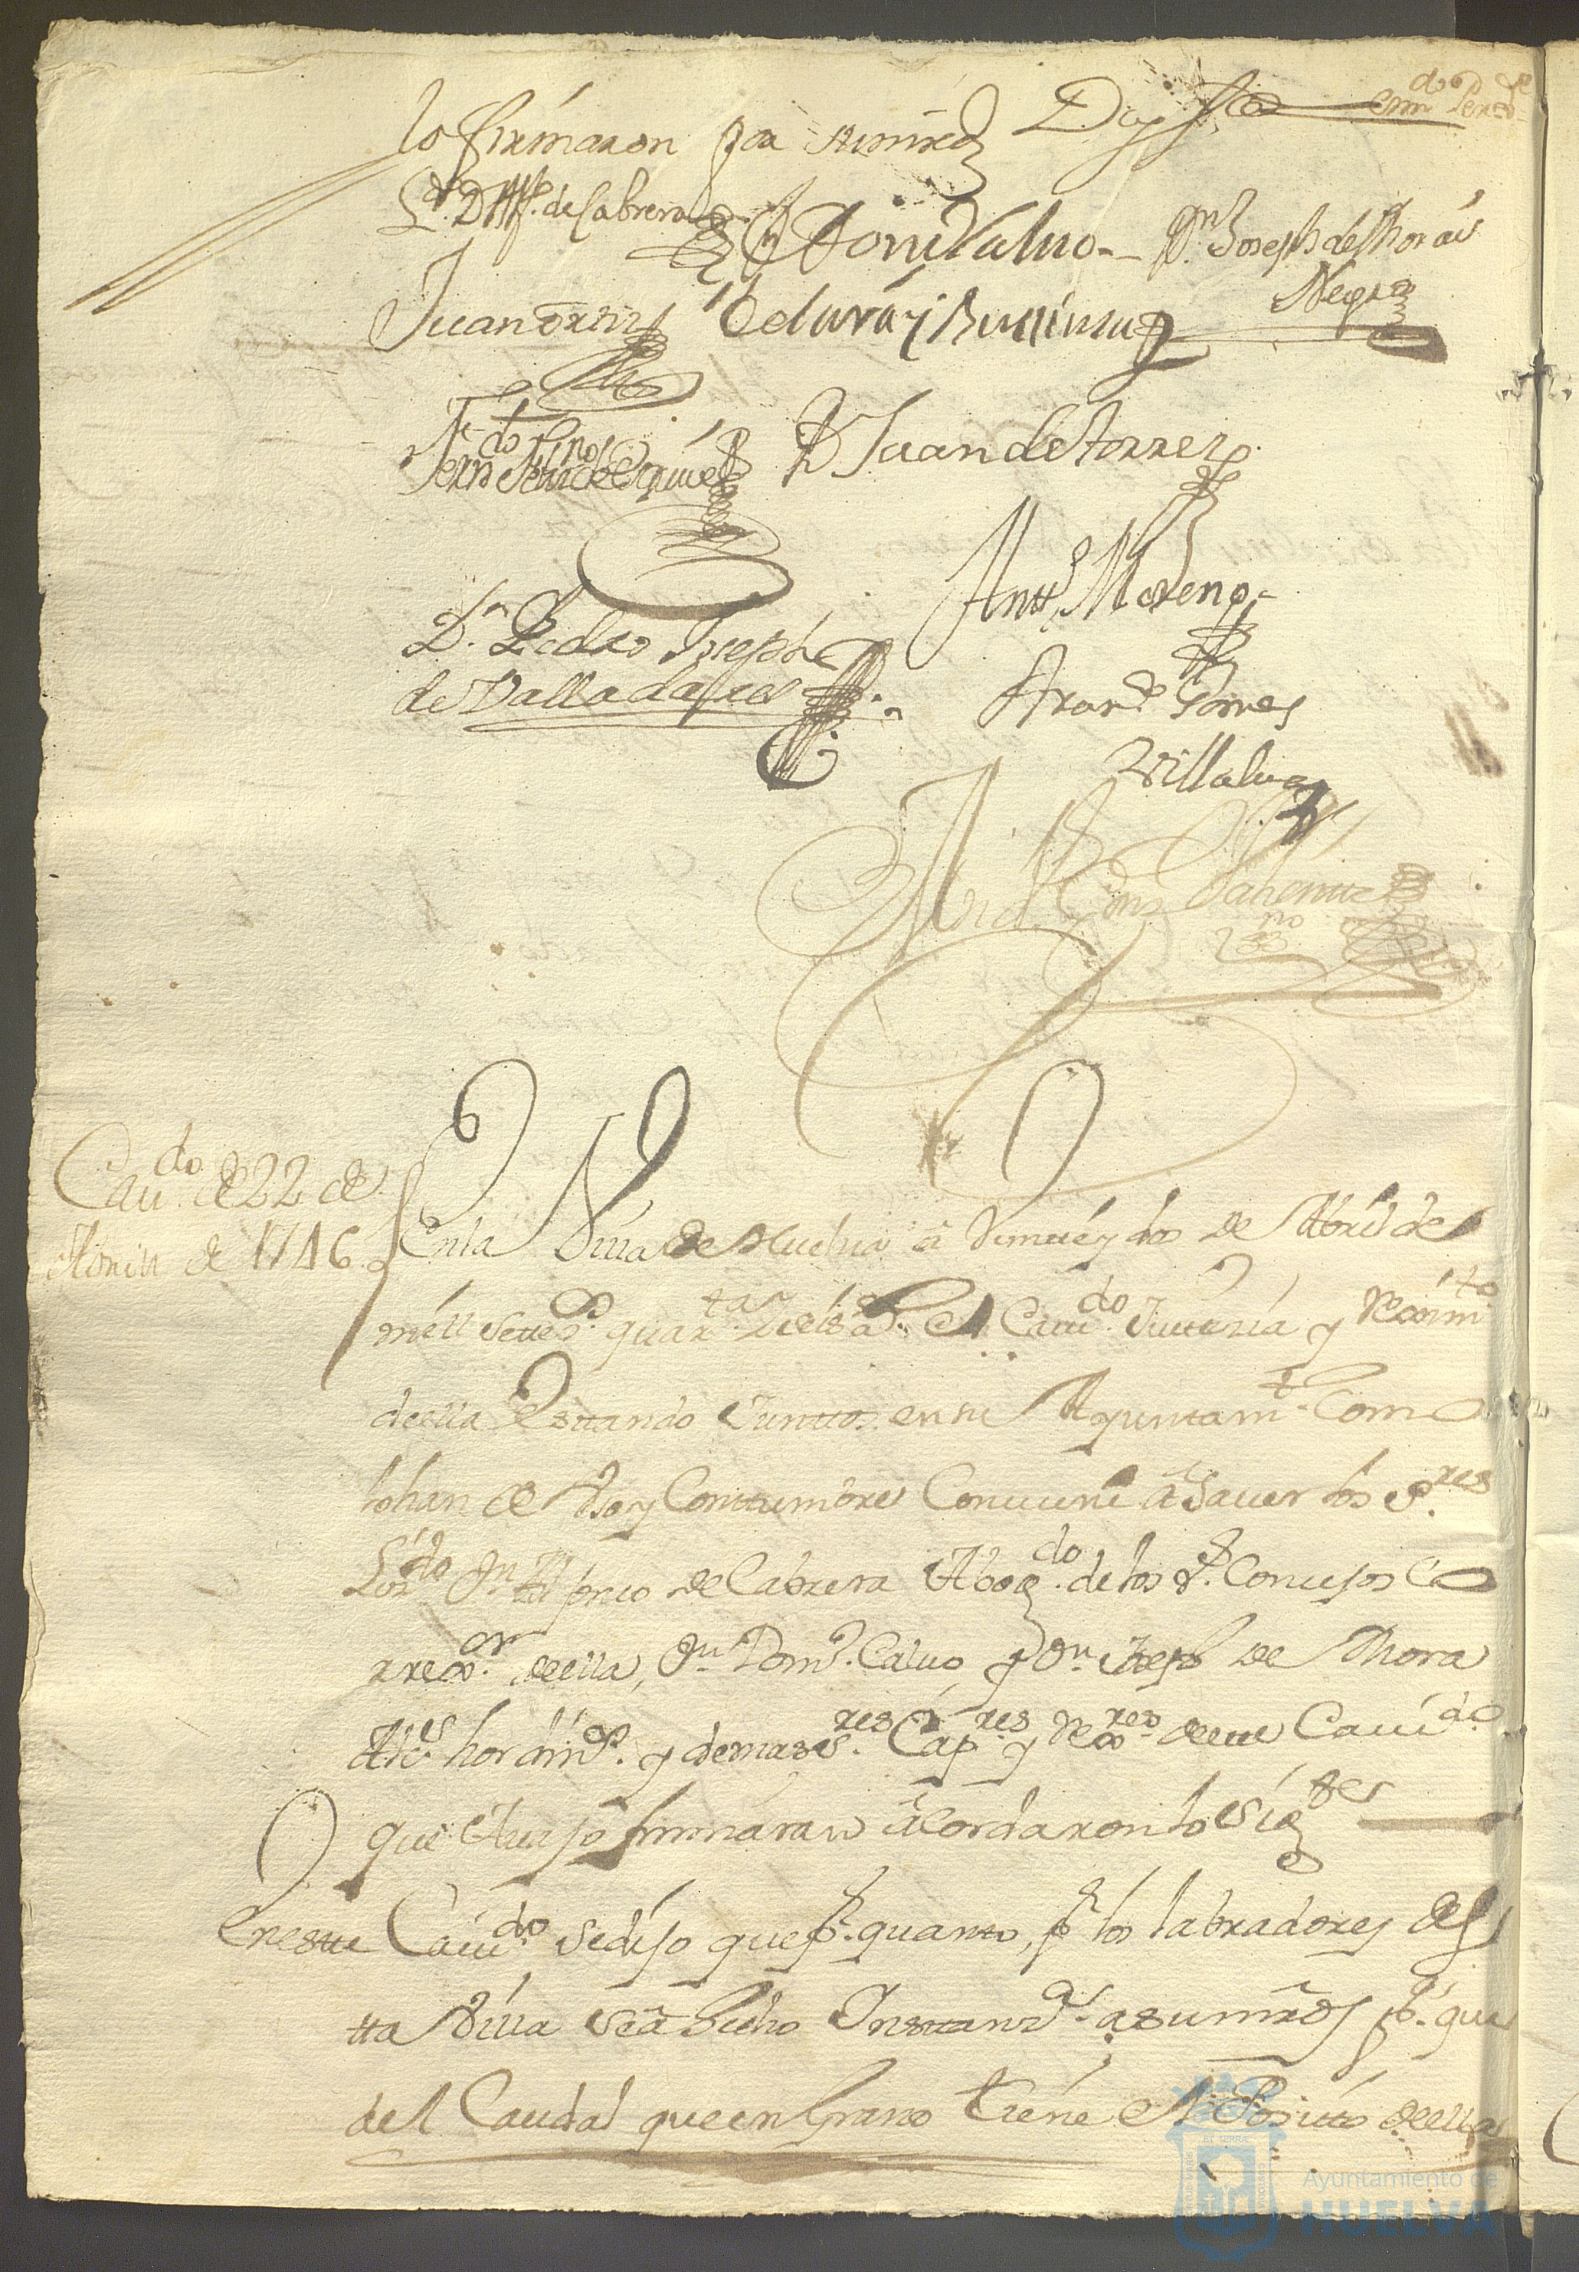 lo firmaron por sumrd Doy fee
Ldo. Dn. Alfo. de Cabrera Dn Domo Calvo Dn. Joseph de Mora
Negro
Juan Ortiz
Ferndo Dn Juan de Torres
Antto. Moreno
Dn. Pedro Joseph
de Valladares
Franco. Gomes
Villalva
Cavdo. de 22 de
Abrill de 1746
En la Villa de Huelva a Veinte y dos de Abril de
mill Settezs. quarta. y seis as. el Cavdo. Justicia y Reximto.
de ella Esttando Juntto en su Ayuntamto. Como
lo han de Uso y Costumbre Conviene a Saver los Sres.
Lizdo. Dn. Alfonso de Cabrera Abogdo. de los Rs. Consejos Co
rrexor. de ella, Dn. Domo. Calvo, y Dn. Joseph de Mora
Alces hordinos. y demas Sres. Capres. y Rexres. de este Cavdo.
que avajo firmaran acordaron lo Sigtes
En estte Cavdo. se dijo que pr. quanto, pr. los labradores des
tta Villa se a hecho Insttanza. a sumrds pa. que
del Caudal que en Grano tiene el Positto de ella
Ayuntamiento de
HUELVA